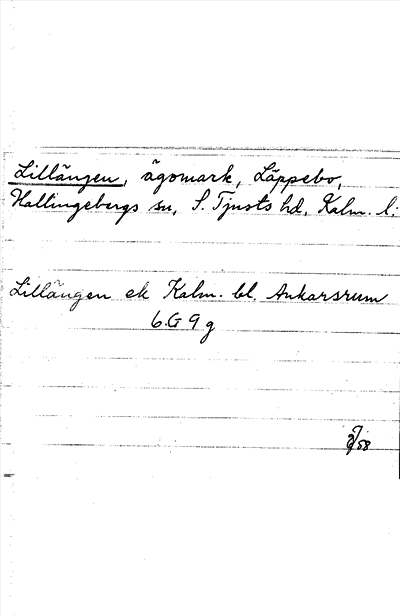 Lillängen, ägomark, Läppebo,
Hallingebergs sn, S. Tjusts hd, Kalm. l.
Lillängen ek Kalm. bl. Ankarsrum
6 G 9 g